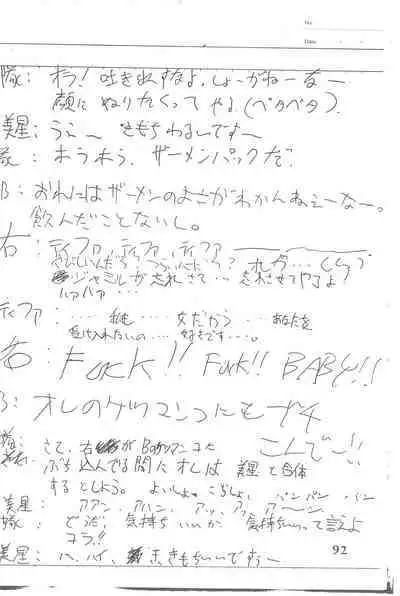 No.
Date
隊：オラ！吐き出すなよ。しょーがねーなー
顔にぬりたくってやる（ベタベタ）。
美星：うぇ〜 きもちわるいですー
隊：ホラホラ、ザーメンパックだ。
B：おれにはザーメンのよさがわかんねぇーなー。
飲んだことないし。
右：ティファ、ティファ、ティファ
ジャミルが忘れさせて…忘れさせてやるよ
ハァハァ…
ティファ：……私…女だから……あなたを
受け入れたいの…好きです…。
右：FUCK!! FUCK!! BABY!!
B：オレのケツマンコにもブチ
こんで〜!!
さて、右がBのケツマンコに
ぶち込んでる間にオレは美星と合体
するとしよう。よいしょ。こらしょ。パンパンパン
美星：アアン、アハン、アッ、アッ、ア〜ン。
隊：どうだ、気持ちいいか、気持ちいいって言えよ
コラ!!
美星：ハ、ハイ、きもちいいですぅー
92